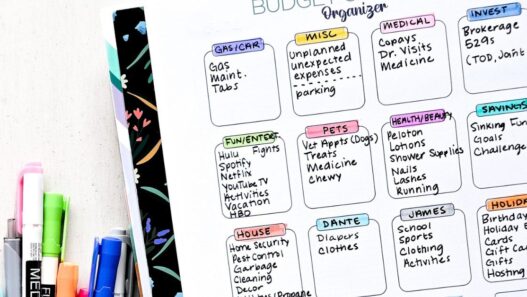 BUDGET
Organizer
GAS/CAR
Gas
Maint.
Tabs
MISC
Unplanned
unexpected
expenses
parking
MEDICAL
Copays
Dr. Visits
Medicine
INVEST
Brokerage
529s
(TOD, Joint
FUN/ENTERT
Hulu Fights
Spotify
Netflix
YouTube TV
Activities
Vacation
HBO
PETS
Vet Appts (Dogs)
Treats
Medicine
Chewy
HEALTH/BEAUTY
Peloton
Lotions
Shower Supplies
Nails
Lashes
Running
SAVINGS
Sinking Fun
Goals
Challenge
HOUSE
Home Security
Pest Control
Garbage
Cleaning
Decor
DANTE
Diapers
Clothes
JAMES
School
Sports
Clothing
Activities
HOLIDA
Birthday
Holiday
Cards
Gift Car
Gifts
Hosting
MED